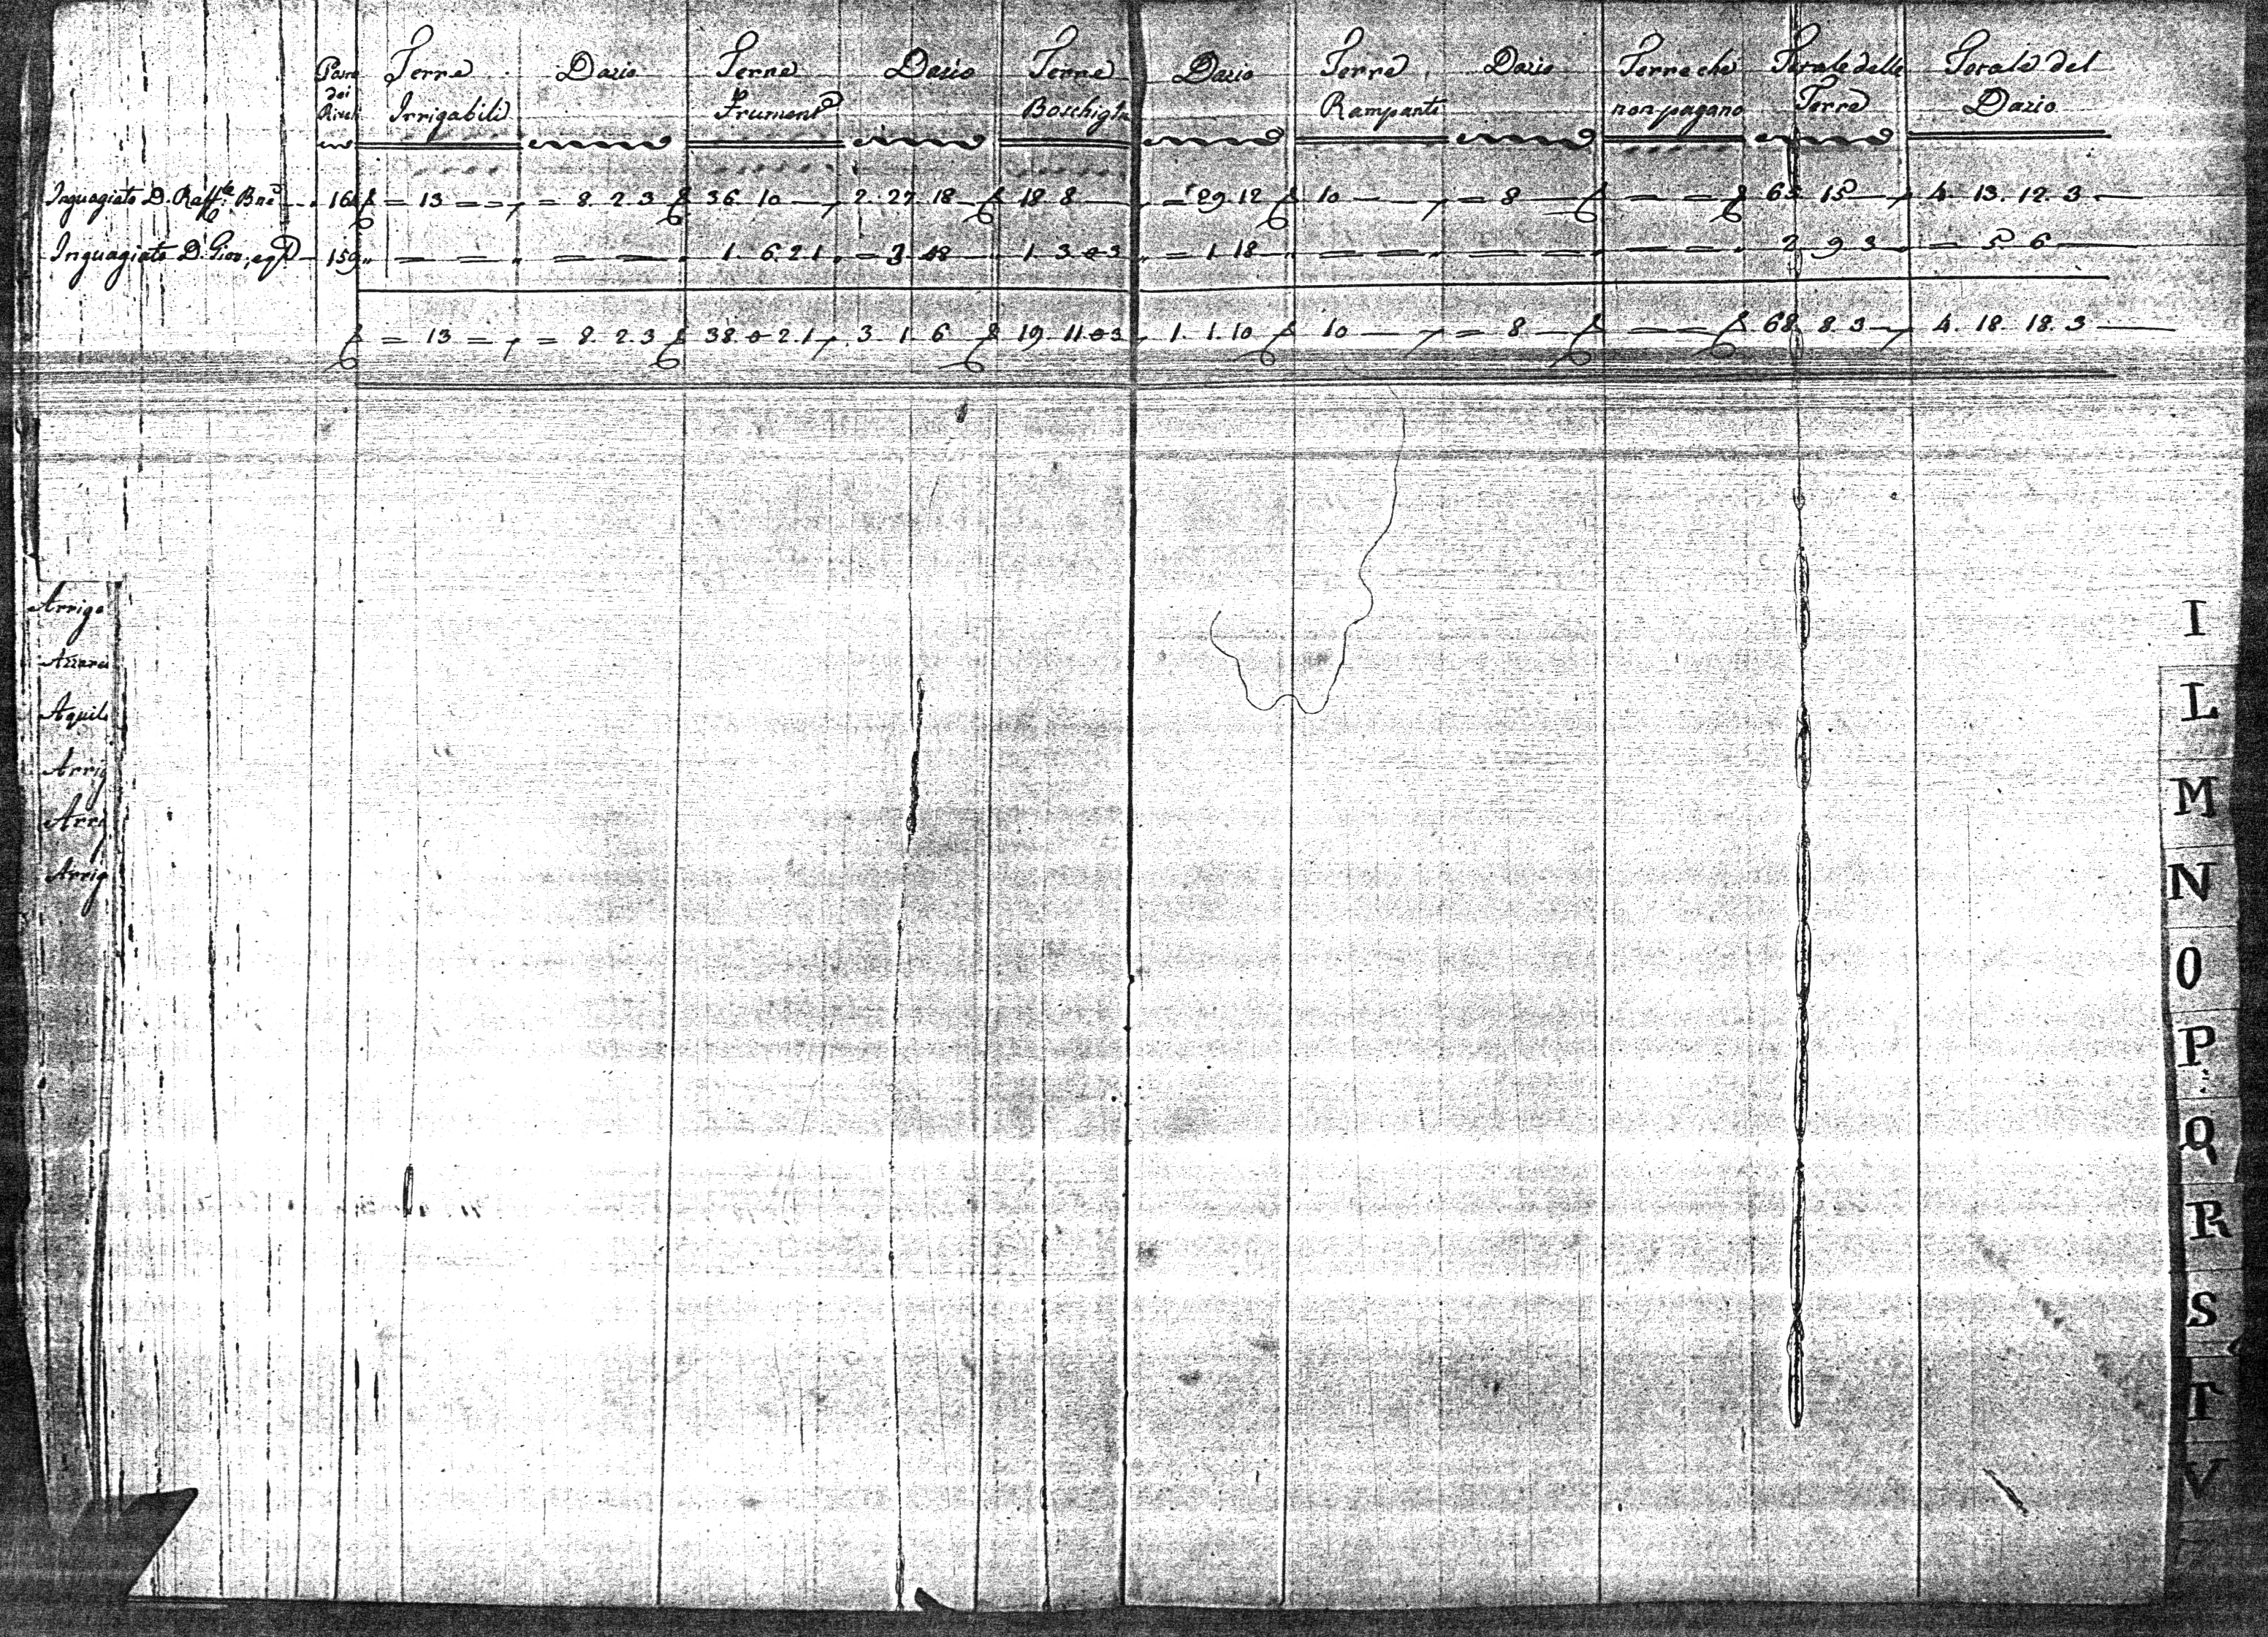 Terre Dazio Terre Dazio Terre Dazio Terre Dazio Terre che Totale delle Totale del
dei Irrigabili Frument Boschigne Rampanti non pagano Terre Dazio
Inguagiato D. Raff.le Bne 16 = 13 = = = 8 2 3 36 10 — 2. 27 18 18 8 = 29. 12 10 — = 8 — — = = 65 15 — 4. 13. 12. 3
Inguagiato D. Giov, eq 159 = = = = 1 6 2 1 = 3 18 1 3 0 3 = 1 18 = = = = = = 2 9 3 = 5 6
= 13 = = 8. 2. 3 38. 0 2. 1 3 1 6 19 11 0 3 1. 1. 10 10 — = 8 — = = 68 8. 3 4. 18. 18. 3
Arrigo
Aquil
Arrig
Arrig
Arrig
I
L
M
N
O
P
Q
R
S
T
V